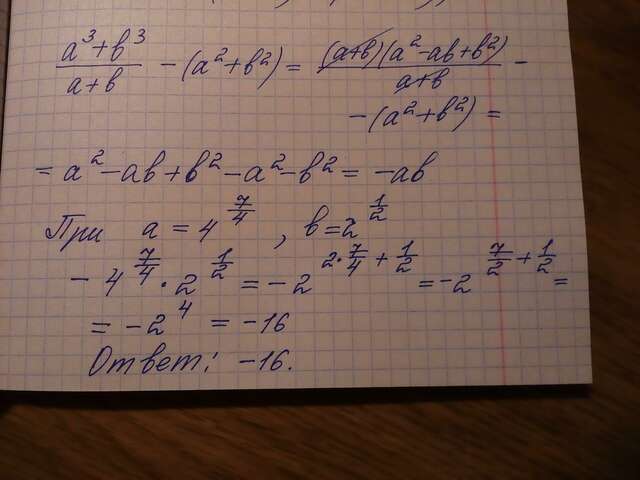 (a³+b³)/(a+b) − (a²+b²) = ((a+b)(a²−ab+b²))/(a+b) −
−(a²+b²) =
= a²−ab+b²−a²−b² = −ab
При a = 4^(7/4), b=2^(1/2)
−4^(7/4) · 2^(1/2) = −2^(2·7/4+1/2) = −2^(7/2+1/2) =
= −2⁴ = −16
Ответ: −16.